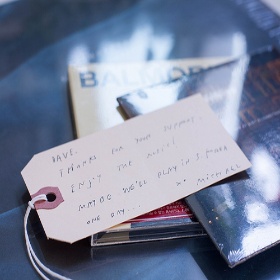 BALMOR
DAVE.
THANKS FOR YOUR SUPPORT.
ENJOY THE MUSIC!
MAYBE WE'LL PLAY IN
ONE DAY... MICHAEL